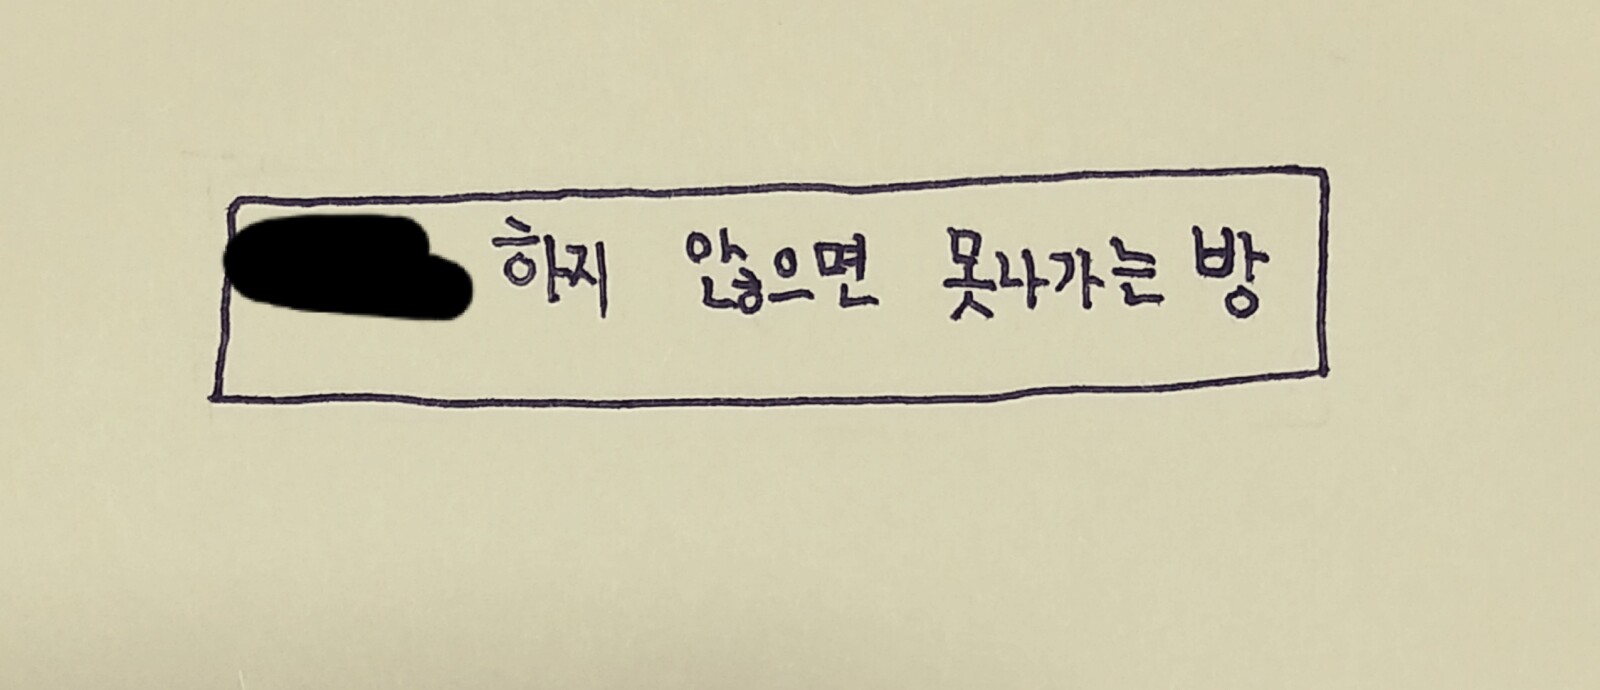 하지 않으면 못나가는 방